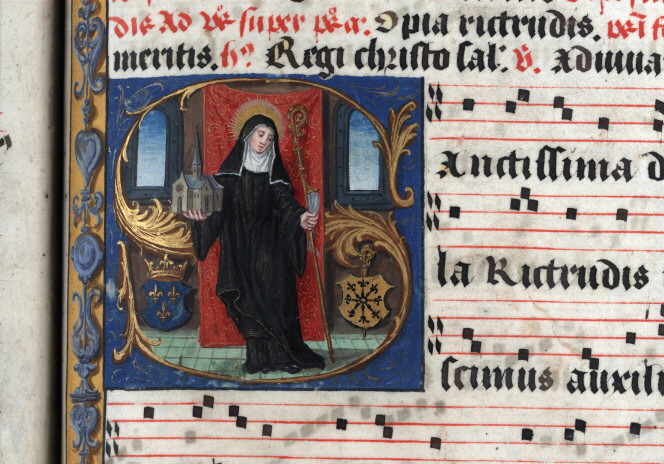 die Ad vẽ super pša. O pia rictrudis.
meritis. hỹ Regi christo sal'. V. Adiuua
Sanctissima d
la Rictrudis
scimus auxili